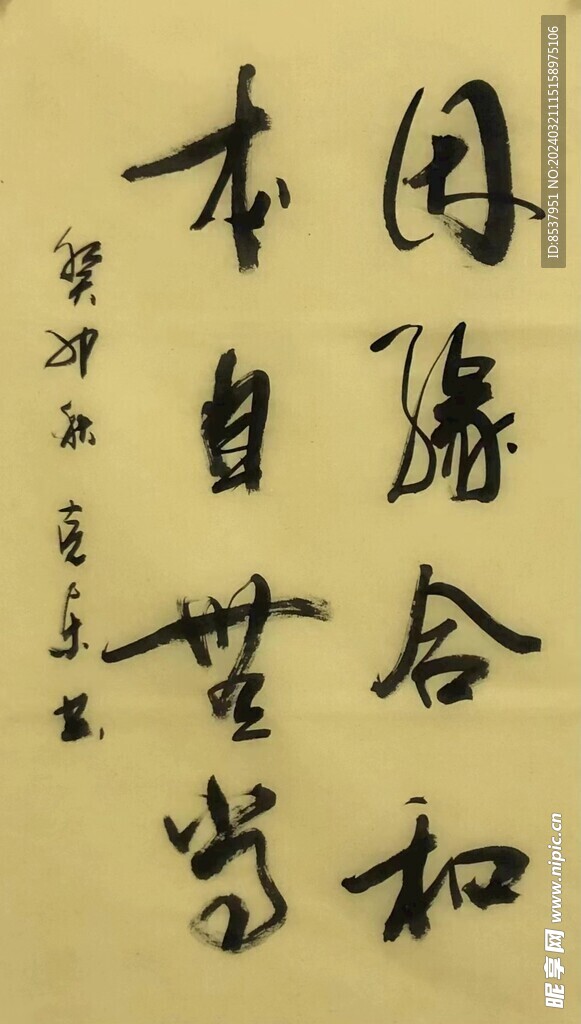 因緣合和
本自無常
癸卯秋克东书
ID:8537951 NO:20240321115158975106
昵享网 www.nipic.cn